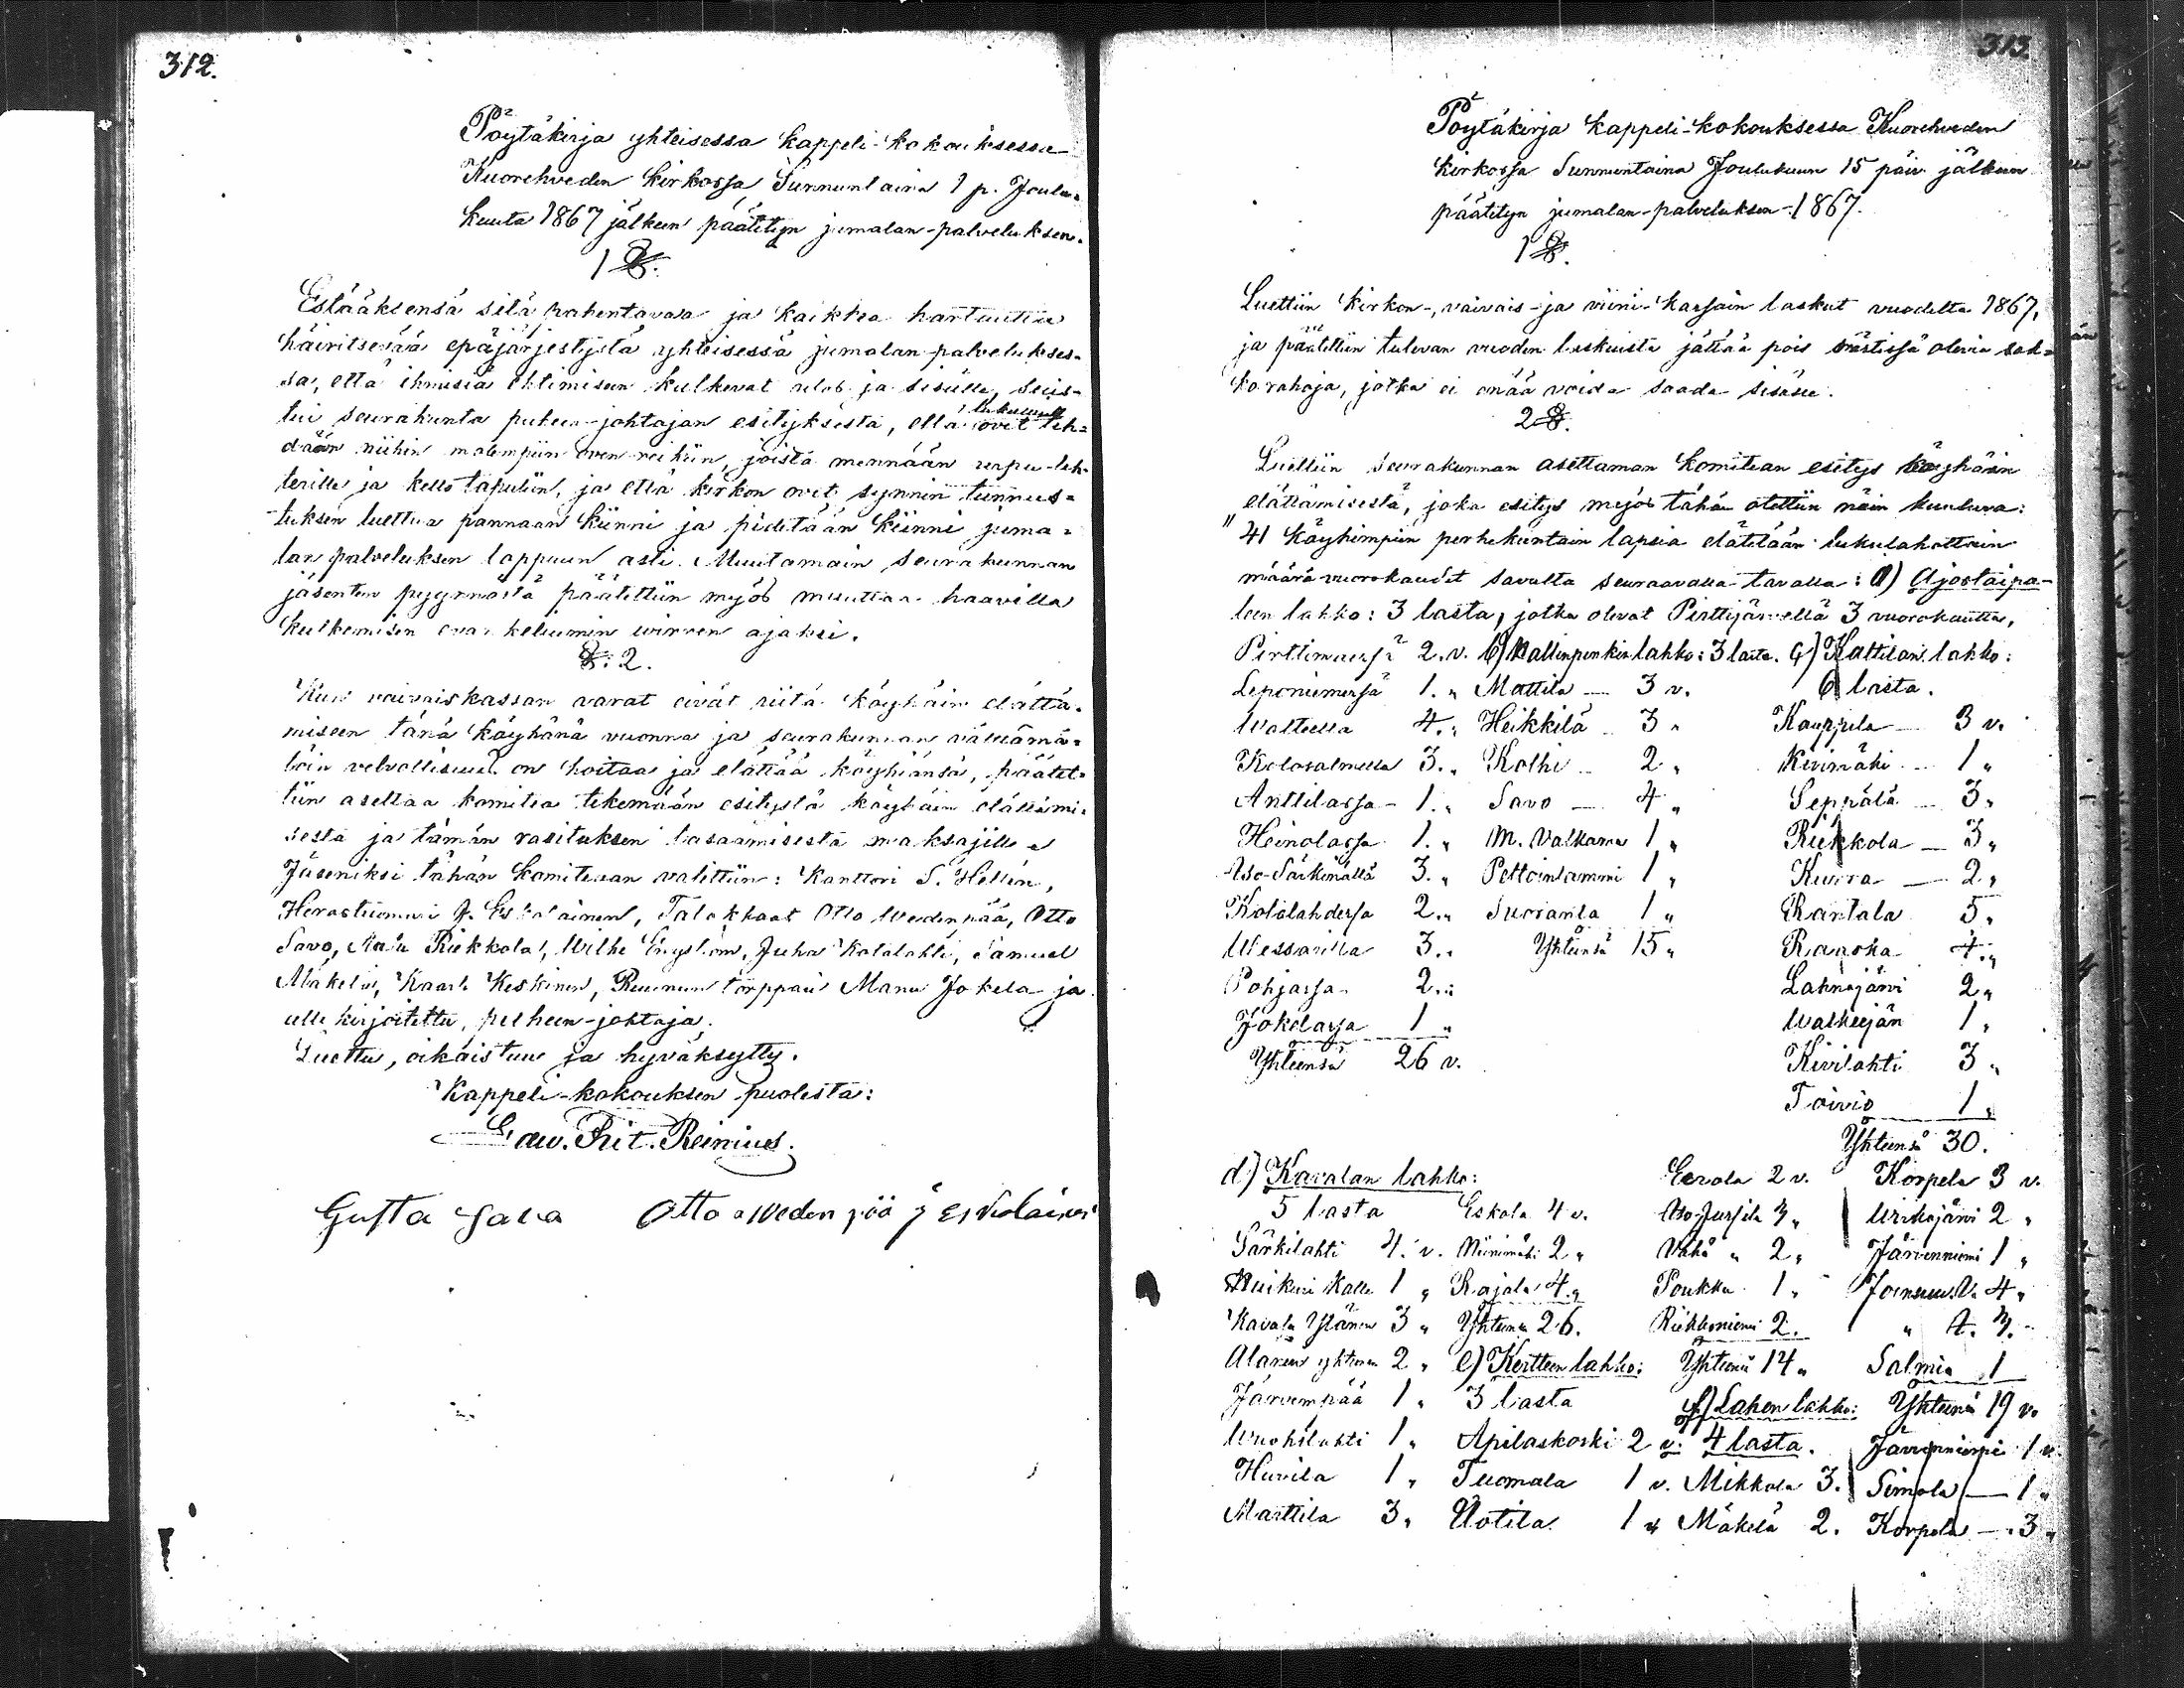 312.
Pöytäkirja yhteisessa kappeli-kokouksessa
Kuorehveden kirkossa Sunnuntaina 1 p. Joulu-
kuuta 1867 jälkeen päätetyn jumalan-palveluksen.
1 §.
Estääksensä sitä pahentavaa ja kaikkea hartautta
häiritsevää epäjärjestystä yhteisessä jumalan palvelukses-
sa, että ihmisiä ehtimiseen kulkevat ulos ja sisälle, suos-
tui seurakunta puheen-johtajan esityksestä, että ovet teh-
dään niihin molempiin oven reikiin, joista mennään urpu-leh-
terille ja kello tapuliin, ja että kirkon ovet synnin tunnus-
tuksen luettua pannaan kiinni ja pidetään kiinni juma-
lan palveluksen loppuun asti. Muutamain seurakunnan
jäsenten pyynnöstä päätettiin myös muuttaa haavilla
kulkemisen virren ajaksi.
§. 2.
Kun vaivaiskassan varat eivät riitä köyhäin elättä-
miseen tänä köyhänä vuonna ja seurakunnan välttämä-
töin velvollisuus on hoitaa ja elättää köyhiänsä, päätet-
tiin asettaa komitea tekemään esitystä köyhäin elättämi-
sestä ja tämän rasituksen tasaamisesta maksajille
Jäseniksi tähän komiteaan valittiin: Kanttori S. Hellén,
Herastuomari J. Eskolainen, Talokkaat Otto Wedenpää, Otto
Savo, Riekkola, Wilhe Engström, Juha Kololahti, Samuel
Mäkelä, Kaarle Keskinen, Ruunun torppari Manu Jokela ja
alle kirjoitettu, puheen-johtaja.
Luettu, oikaistuu ja hyväksytty.
Kappeli-kokouksen puolesta:
Edw. Frit. Reinius.
Gusta Sava Otto Weden pää J Eskolainen
313.
Pöytäkirja kappeli-kokouksessa Kuorehveden
kirkossa Sunnuntaina Joulukuun 15 päiv. jälkeen
päätetyn jumalan-palveluksen. 1867.
1 §.
Luettiin kirkon-, vaivais- ja viini-kassain laskut vuodelta 1867,
ja päätettiin tulevan vuoden laskuista jättää pois rästissä olevia sak-
korahoja, jotka ei enää voida saada sisään.
2 §.
Luettiin seurakunnan asettaman komitean esitys köyhäin
elättämisestä, joka esitys myös tähän otettiin näin kuuluva:
"41 köyhimpiin perhekuntain lapsia elätetään lukulahottain
määrä vuorokaudet savulta seuraavalla tavalla: a) Ajostaipa-
leen lahko: 3 lasta, jotka olevat Pirttijärvellä 3 vuorokautta,
Pirttimaessä 2. v. b) Hallinpenkin lahko: 3 lasta. c) Kattilan lahko:
Leponiemessä 1. " Mattila — 3 v. 6 lasta.
Walteella 4. " Heikkilä — 3 " Kauppila — 3 v.
Kolosalmella 3. " Kolhi — 2 " Kivimäki — 1 "
Anttilassa — 1. " Savo — 4 " Seppälä — 3 "
Heinolassa 1. " M. Valkama 1 " Riekkola — 3 "
Iso-Särkimällä 3. " Pettoinlammi 1 " Kurra — 2 "
Kololahdessa 2. " Suoranta 1 " Rantala 5 "
Wessarilla 3. " Yhteensä 15 " Raaska 4. "
Pohjassa 2. " Lahnajärvi 2 "
Jokelassa 1 " Walkejän 1 "
Yhteensä 26 v. Kivilahti 3 "
Toivio 1 "
Yhteensä 30.
d) Kavalan lahko: Eerola 2 v. Korpela 3 v.
5 lasta Eskola 4 v. Iso-Jussila 3 " Urikajärvi 2 "
Särkilahti 4. v. Niinimäki 2 " Vähä " 2 " Järvenniemi 1 "
Huikuri Kalle 1 " Rajala 4. " Poukka 1 " 4 "
Kavala Ylänen 3 " Yhteensä 26. Riekkoniemi 2. " A. 3. "
Alanen yhteensä 2 " e) Kertteen lahko: Yhteensä 14 " Salmia 1
Järvempää 1 " 3 lasta f) Lahen lahko: Yhteensä 19 v.
Wuohilahti 1 " Apilaskoski 2 v. 4 lasta. Järvenniemi 1 v.
Huvila 1 " Tuomala 1 v. Mikkola 3. Simola — 1 "
Marttila 3 " Uotila 1 " Mäkelä 2. Korpela — 3 "